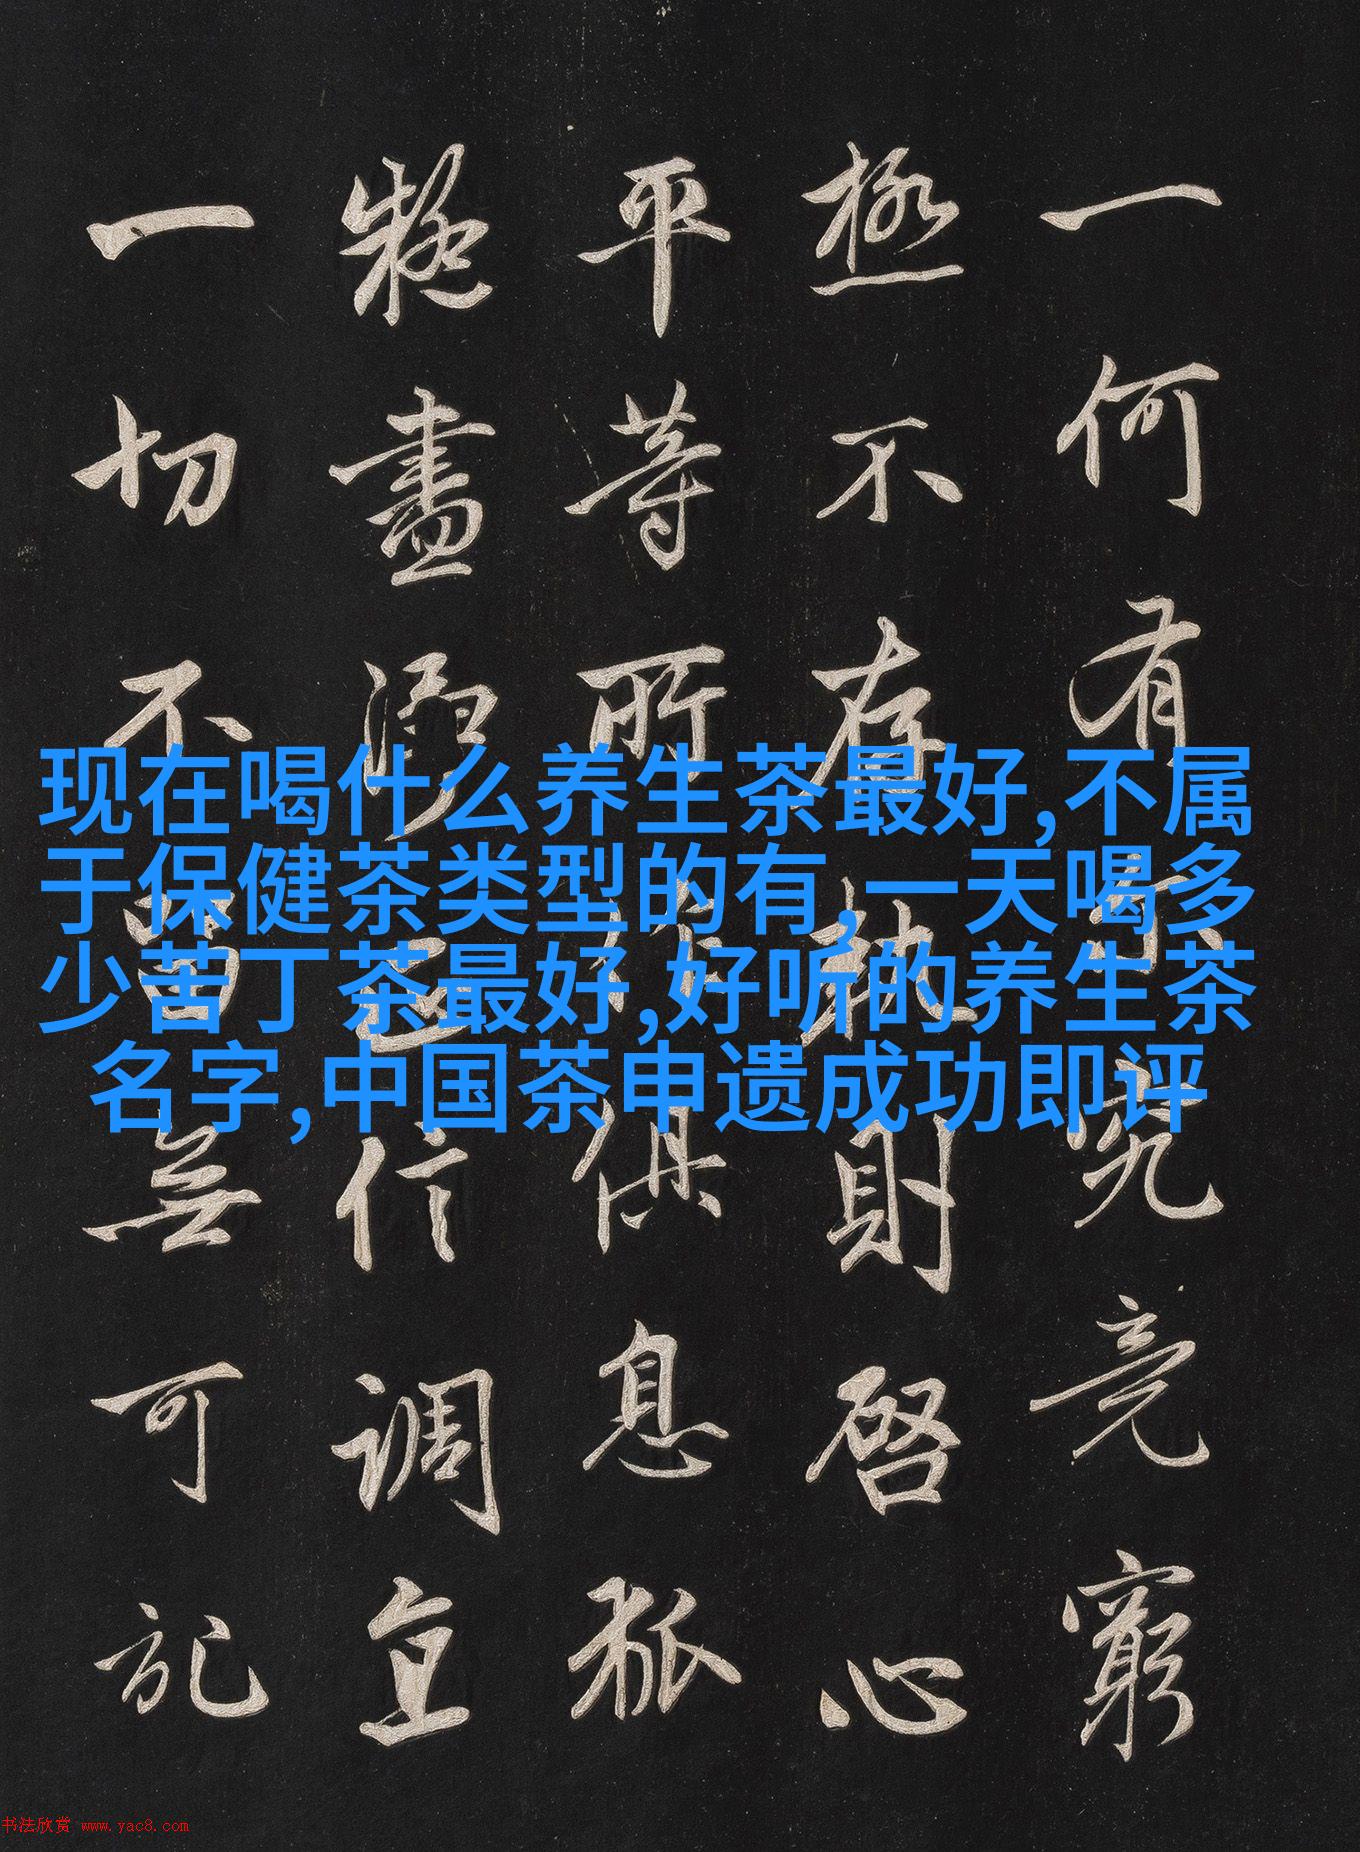 一何有究竟窮
極不存軌則啓心
平等所作俱息狐
疑盡淨正信調直
一切不留無可記
现在喝什么养生茶最好,不属
于保健茶类型的有,一天喝多
少苦丁茶最好,好听的养生茶
名字,中国茶申遗成功即评
书法欣赏 www.yac8.com